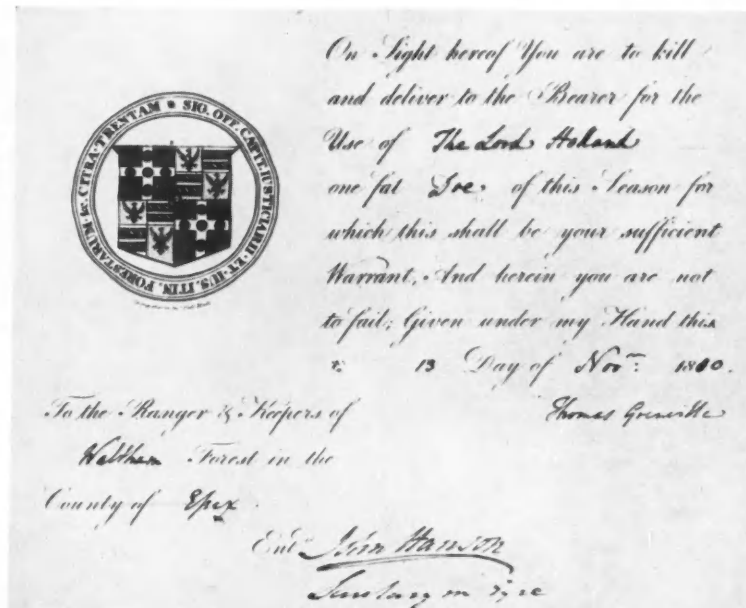 SIG. OFF. CAPIT. IUSTICIARII · ET · IUS. ITIN. FORESTARUM · &c. CITRA · TRENTAM
On Sight hereof You are to kill
and deliver to the Bearer for the
Use of The Lord Holland
one fat Doe of this Season for
which this shall be your sufficient
Warrant, And herein you are not
to fail; Given under my Hand this
13 Day of Novr: 1800.
Thomas Grenville
To the Ranger & Keepers of
Waltham Forest in the
County of Essex
Entd John Hanson
Secretary in Eyre